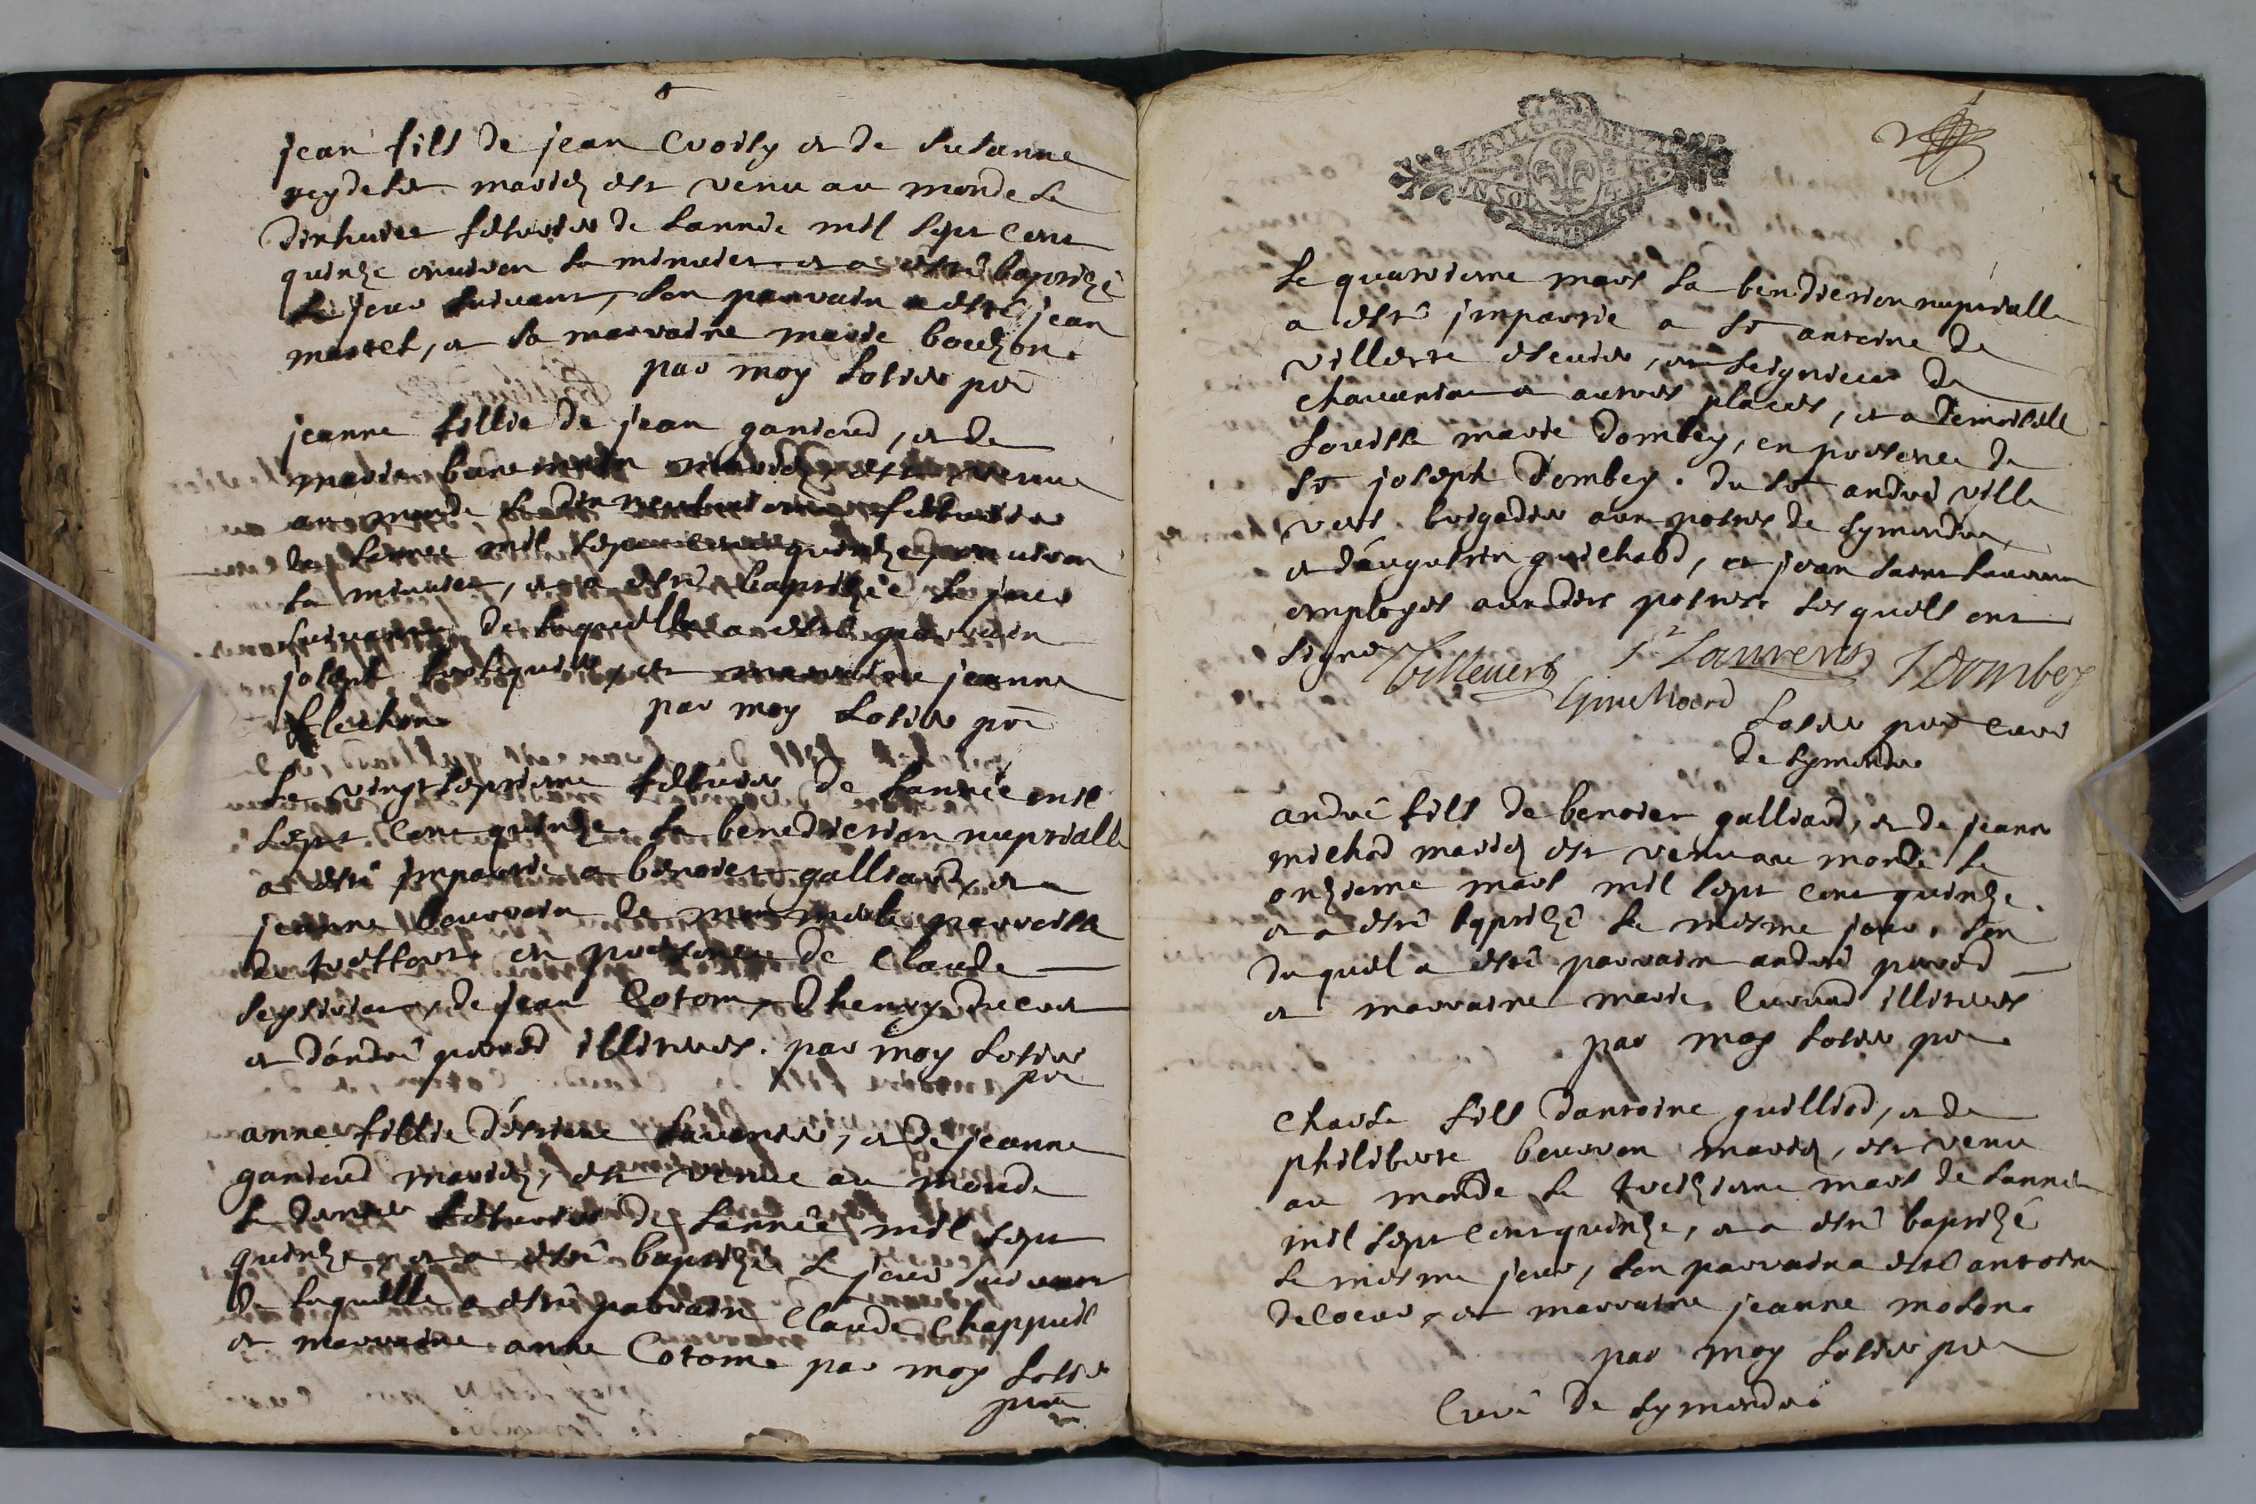 jean fils de jean Croisy et de susanne
reydelet mariez est venu au monde le
dixhuict febvrier de lannée mil sept cent
quinze environ la minuict et a estré baptizé
le jour suivant, son parrain a estré jean
martel, et sa marraine marie bouzon.
par moy Solier pre
jeanne fillie de jean gantoud, et de
marie mariez est venue
au monde le dix neufviesme febvrier
de lannee mil sept cent quinze, environ
la minuict, et a estré baptizée le jour
suivant, de laquelle a estré parrain
joseph et marraine jeanne
flechon par moy Solier pre
Le vingt septieme febvrier de lannée mil
sept cent quinze la benediction nuptialle
a estré impartie a benoict galliard, et a
jeanne bourrain de paroisse
de treffort en presence de Claude
de jean Cotton, dhenry ducour
et dandré perrod illitrers. par moy Solier
pre
anne fillie destiene laurensier, et de jeanne
gantoud mariez, est venue au monde
le dernier febvrier de lannée mil sept
quinze, et a estré baptizée le jour suivant
de laquelle a estré parrain Claude Chappuis
et marraine anne Cotton par moy Solier
pre
Le quatrieme mars la benediction nuptialle
a estré impartie a sr antoine de
villette escuier, et seignieur de
et autres places, et a demoiselle
Louisse marie dombey, en presence de
sr joseph dombey, du sr andré ville
vert brigadier aux postes de symandre,
et daugustin guichard, et jean saint laurens
employés auxdits postes lesquels ont
signé Villevert St Laurens J Dombey
Guichard
Solier pre curé
de symandre
andré fils de benoict galliard, et de jeanne
michod mariez est venu au monde le
onzieme mars mil sept cent quinze.
et a estré baptizé le mesme jour, son
duquel a estré parrain andré perrod
et marraine marie illitrers
par moy Solier pre
Charle fils dantoine guilliod, et de
philiberte bourron mariez, est venu
au monde le treizieme mars de lannée
mil sept cent quinze, et a estré baptizé
le mesme jour, son parrain a estré antoine
decoeur, et marraine jeanne moson.
par moy Solier pre
Curé de symandre